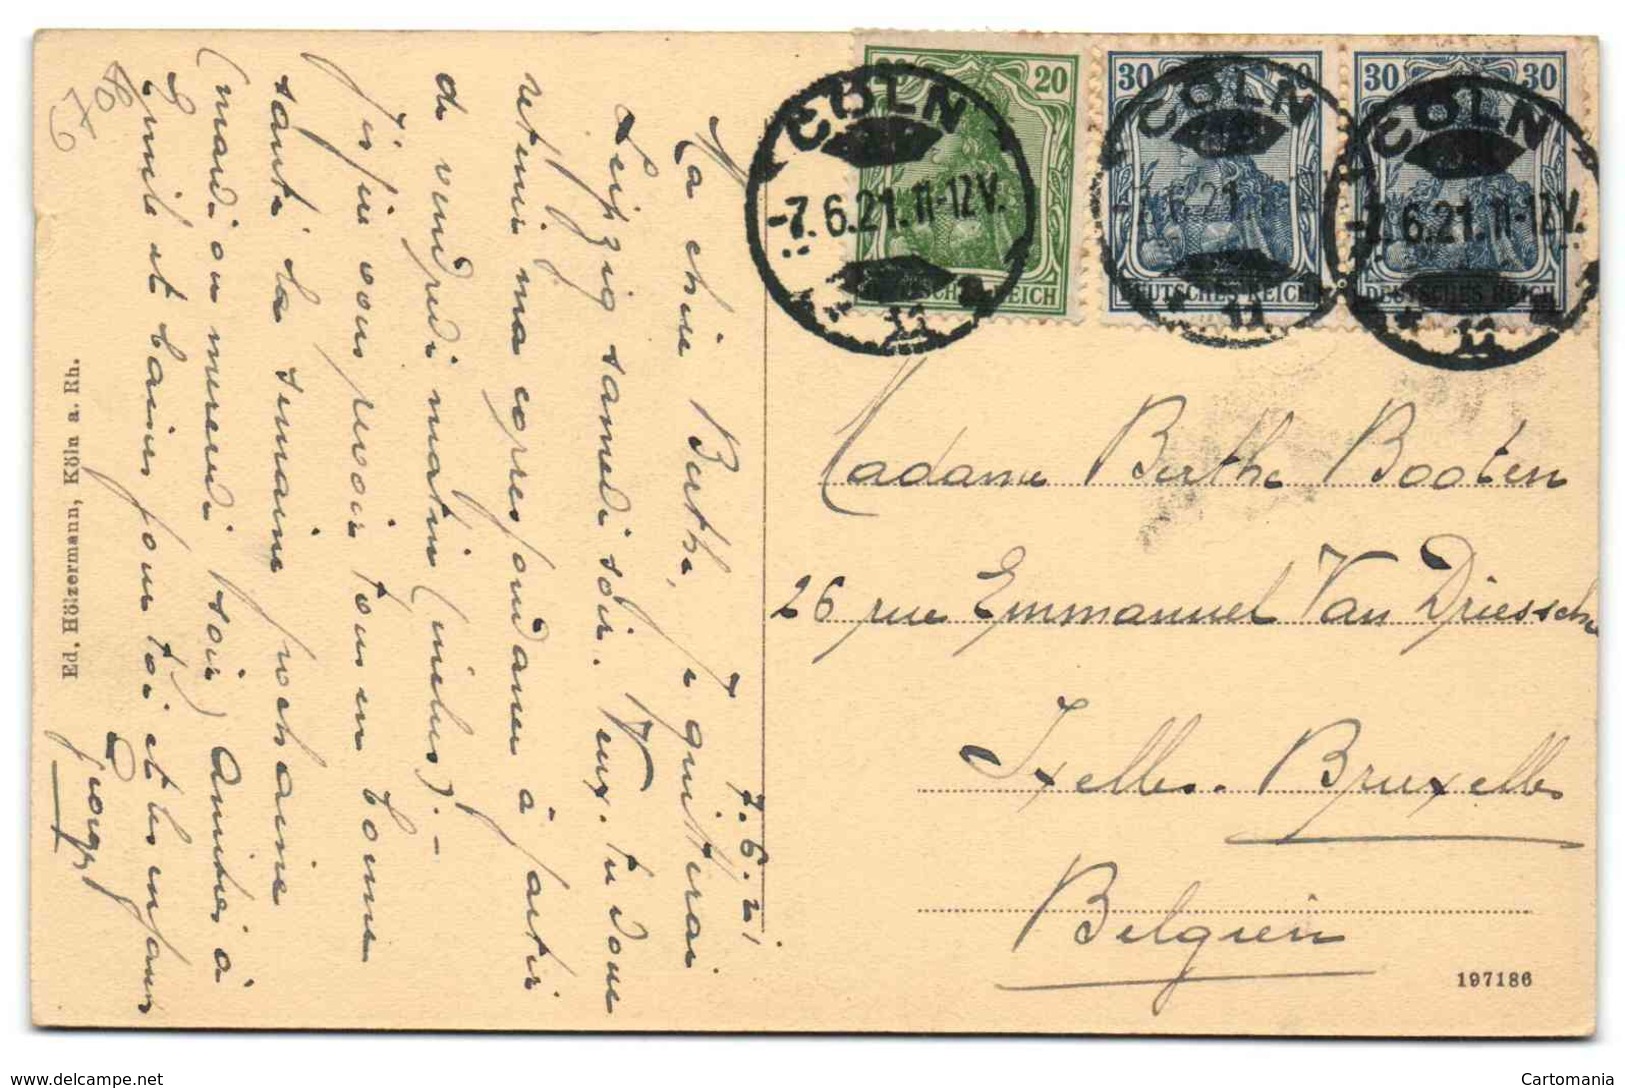 7.6.21
Ma chère Berthe, je quitterai
Leipzig samedi soir. Veux-tu donc
retenir ma correspondance à partir
de vendredi matin (inclus). -
J'espère vous revoir tous en bonne
santé la semaine prochaine
(mardi ou mercredi soir) Amitiés à
et baisers pour toi et les enfants
Georges
Ed. Hölzermann, Köln a. Rh.
20
30 30
30 30
DEUTSCHES REICH
DEUTSCHES REICH
DEUTSCHES REICH
CÖLN
-7.6.21. 11-12V.
* 11 a
CÖLN
-7.6.21. 11-12V.
* 11
CÖLN
-7.6.21. 11-12V.
* 11 a
Madame Berthe Booten
26 rue Emmanuel Van Driessche
Ixelles-Bruxelles
Belgien
197186
www.delcampe.net
Cartomania